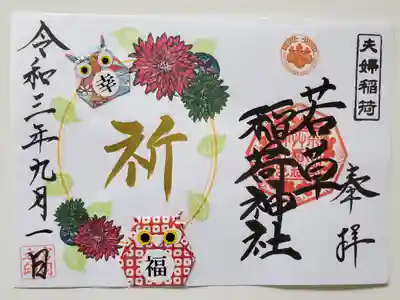 夫婦稲荷
奉拝
若草
稲荷神社
幸
祈
福
令和二年九月一日